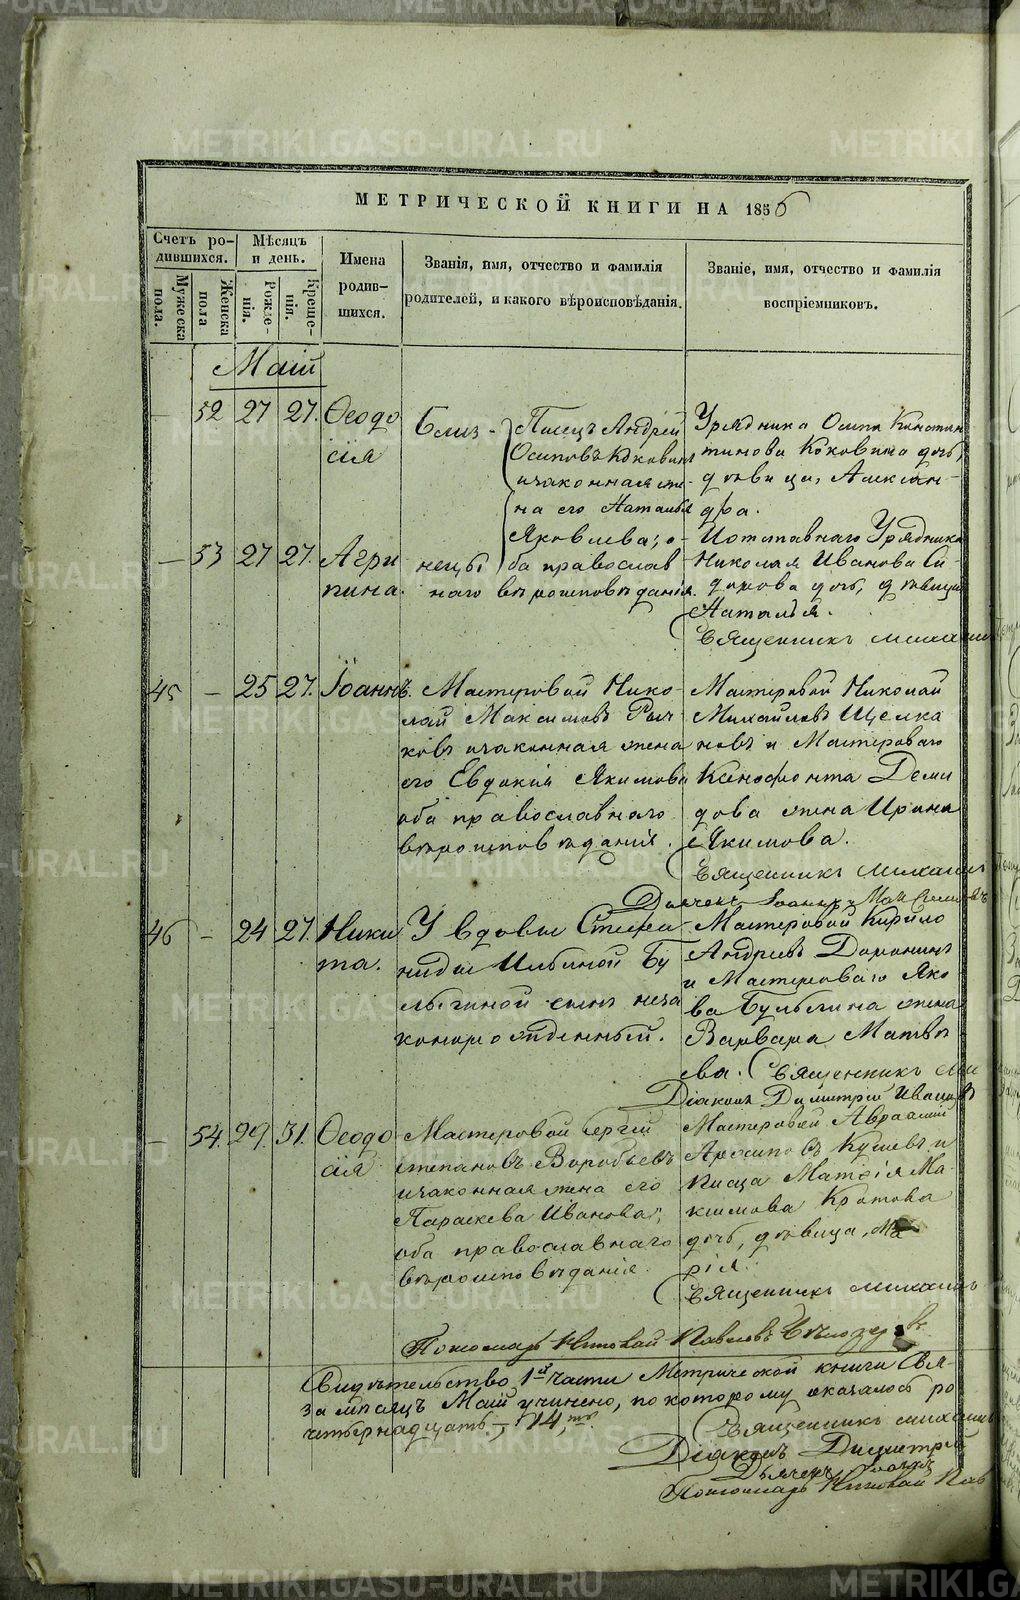 METRIKI.GASO-URAL.RU
МЕТРИЧЕСКОЙ КНИГИ НА 1856
Счетъ ро-
дившихся.
Мужеска
пола.
Женска
пола
Мѣсяцъ
и день.
Рожде-
нія.
Креще-
нія.
Имена
родив-
шихся.
Званія, имя, отчество и фамилія
родителей, и какого вѣроисповѣданія.
Званіе, имя, отчество и фамилія
воспріемниковъ.
Маій
— 52 27 27. Ѳеодо
сія
Близ-
Писецъ Андрей
Осиповъ Коковинъ
и законная же-
на его Наталья
Яковлева; о-
Урядника Осипа Констан
тинова Коковина дочь,
дѣвица, Алексан-
дра.
— 53 27 27. Агри
пина.
нецы
ба православ
наго вѣроисповѣданія.
И отставнаго Урядника
Николая Иванова Си-
дорова дочь, дѣвица
Наталья.
Священникъ Михаил
45 — 25 27. Іоаннъ.
Мастеровой Нико-
лай Максимовъ Рыч
ковъ и законная жена
его Евдокия Якимова
оба православнаго
вѣроисповѣданія.
Мастеровой Николай
Михайловъ Щелка
новъ и Мастероваго
Ксенофонта Деми
дова жена Ирина
Якимова.
Священникъ Михаил
Дьячекъ Іоаннъ
46 — 24 27. Ники
та.
У вдовы Стефа
ниды Ильиной Бу
лыгиной сынъ неза
коннорожденный.
Мастеровой Кирило
Андреевъ Доронинъ
и Мастероваго Яко
ва Булыгина жена
Варвара Матвѣ
ева. Священникъ Ми
Діаконъ Димитрій Ивановъ
— 54. 29. 31. Ѳеодо
сія
Мастеровой Сергій
Степановъ Воробьевъ
и законная жена его
Параскева Иванова,
оба православнаго
вѣроисповѣданія.
Мастеровой Авраамій
Архиповъ и
Писца Матѳія Ма-
ксимова Кротова
дочь, дѣвица, Ма
рія.
Священникъ Михаилъ
Пономарь Николай Павловъ
Свидѣтельство 1й части Метрической книги Свя-
за мѣсяцъ Маій учинено, по которому оказалось ро
четырнадцать — 14,
Священникъ Михаилъ
Діаконъ Димитрій
Дьячекъ Іоаннъ
Пономарь Николай Пав